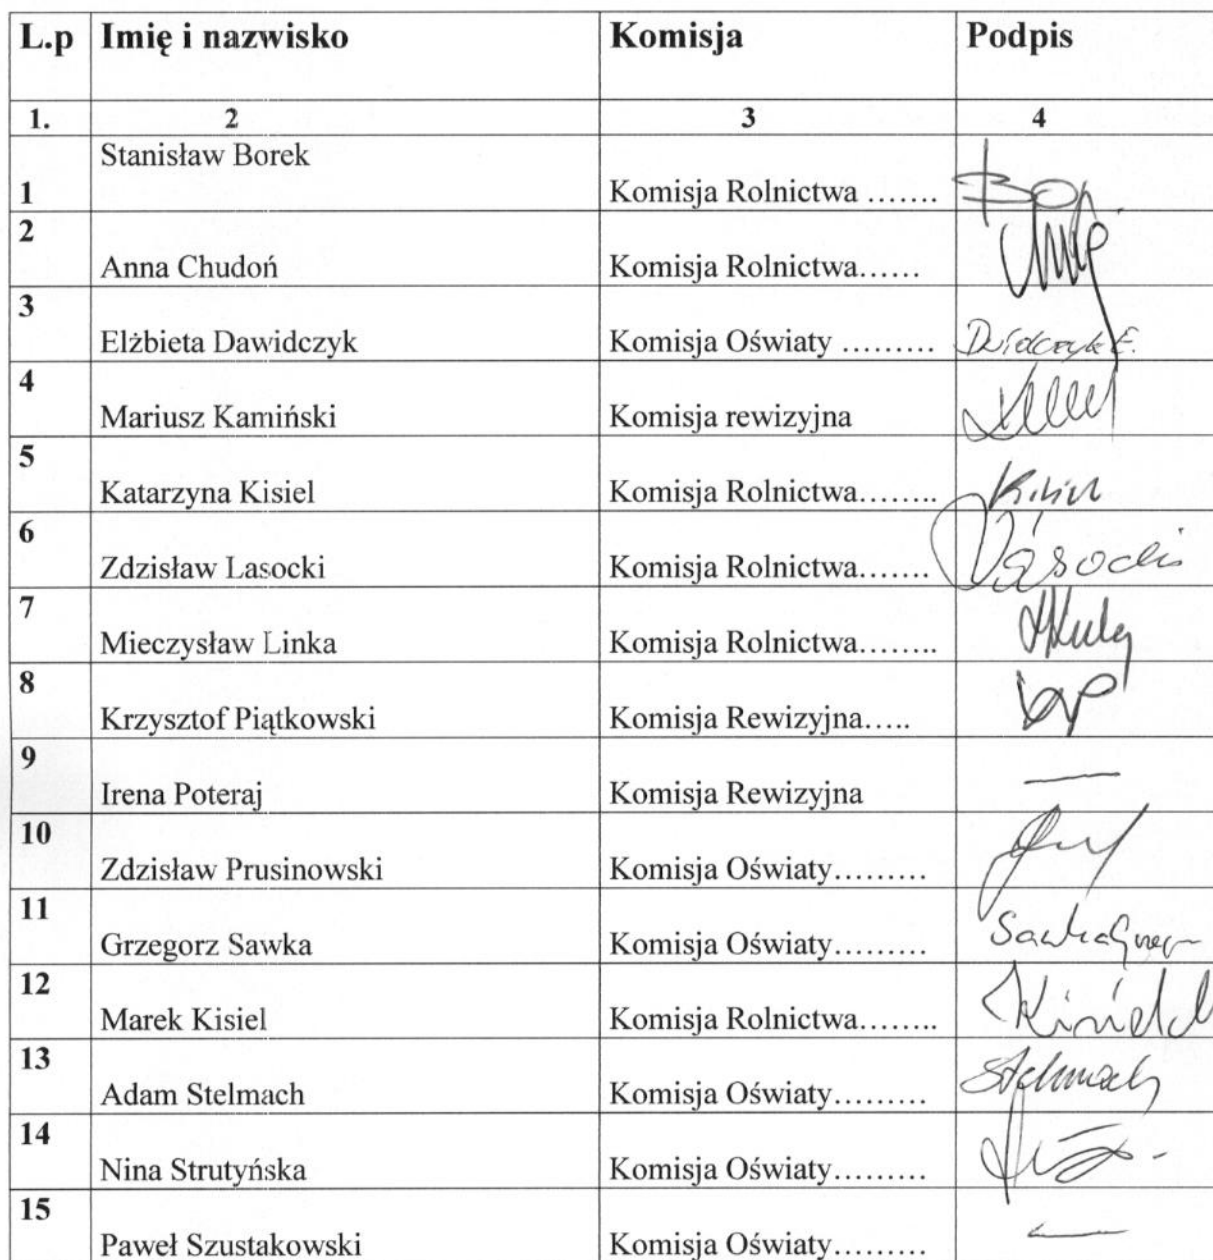 L.p Imię i nazwisko Komisja Podpis
1. 2 3 4
1 Stanisław Borek Komisja Rolnictwa .......
2 Anna Chudoń Komisja Rolnictwa......
3 Elżbieta Dawidczyk Komisja Oświaty ......... Dawidczyk E.
4 Mariusz Kamiński Komisja rewizyjna
5 Katarzyna Kisiel Komisja Rolnictwa........ Kisiel
6 Zdzisław Lasocki Komisja Rolnictwa....... Lasocki
7 Mieczysław Linka Komisja Rolnictwa........
8 Krzysztof Piątkowski Komisja Rewizyjna.....
9 Irena Poteraj Komisja Rewizyjna —
10 Zdzisław Prusinowski Komisja Oświaty.........
11 Grzegorz Sawka Komisja Oświaty......... Sawka
12 Marek Kisiel Komisja Rolnictwa........ Kisiel
13 Adam Stelmach Komisja Oświaty......... Stelmach
14 Nina Strutyńska Komisja Oświaty.........
15 Paweł Szustakowski Komisja Oświaty......... —